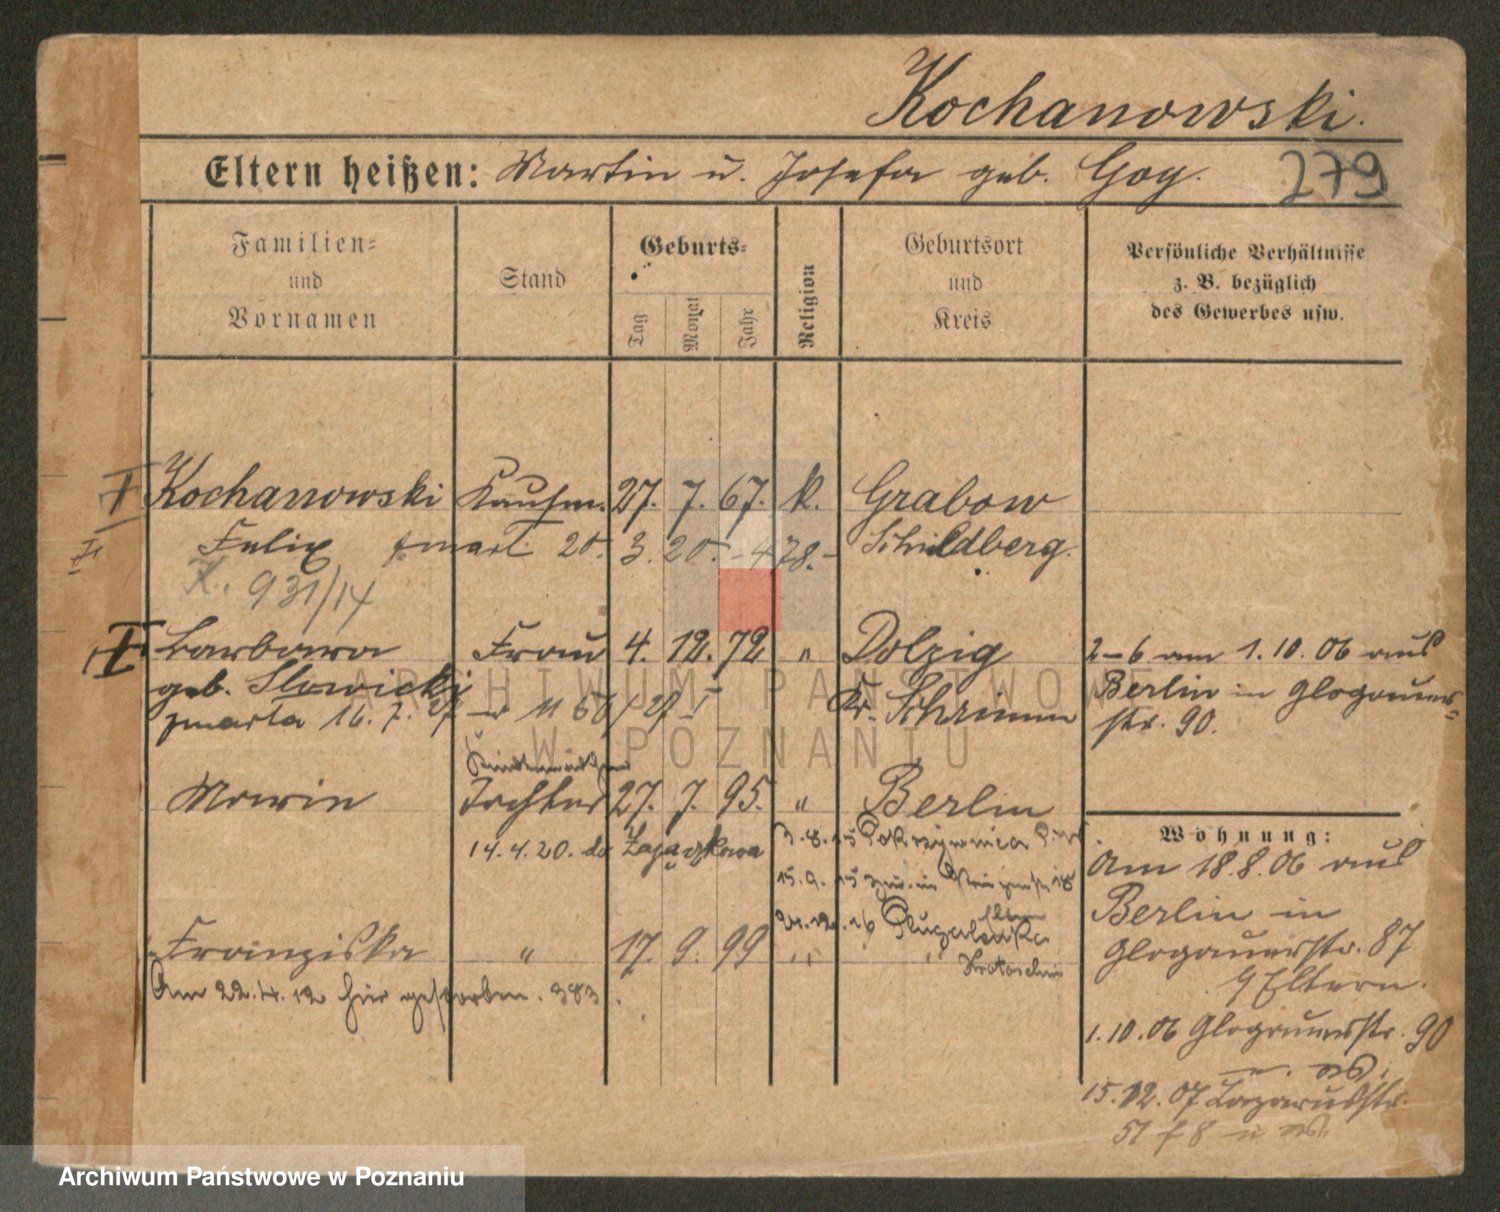 Kochanowski.
Eltern heißen: Martin u. Josefa geb. Goy.
279
Familien= und Vornamen
Stand
Geburts=
Tag
Monat
Jahr
Religion
Geburtsort und Kreis
Persönliche Verhältnisse z. B. bezüglich des Gewerbes usw.
I Kochanowski Kaufm. 27. 7. 67. k. Grabow
Felix zmarł 20. 3. 20. – 478. – Schildberg.
X. 931/14
II Barbara Frau 4. 12. 72 " Dolzig
geb. Slowicki Kr. Schrimm
zmarła 16. 7. 27
2–6 am 1.10.06 aus
Berlin in Glogauer=
str. 90.
Marie Tochter 27. 7. 95. " Berlin
14.4.20. do Zajączkowa
3.8.15 Pokrzywnica
15.9.15
24.12.16
Krotoschin
Franziska " 17. 9. 99 " "
Am 22.4.12 hier gestorben. 383.
Wohnung:
Am 18.8.06 aus
Berlin in
Glogauerstr. 87
Eltern.
1.10.06 Glogauerstr. 90
15.12.07 Lazarusstr.
ARCHIWUM PAŃSTWOWE
W POZNANIU
Archiwum Państwowe w Poznaniu